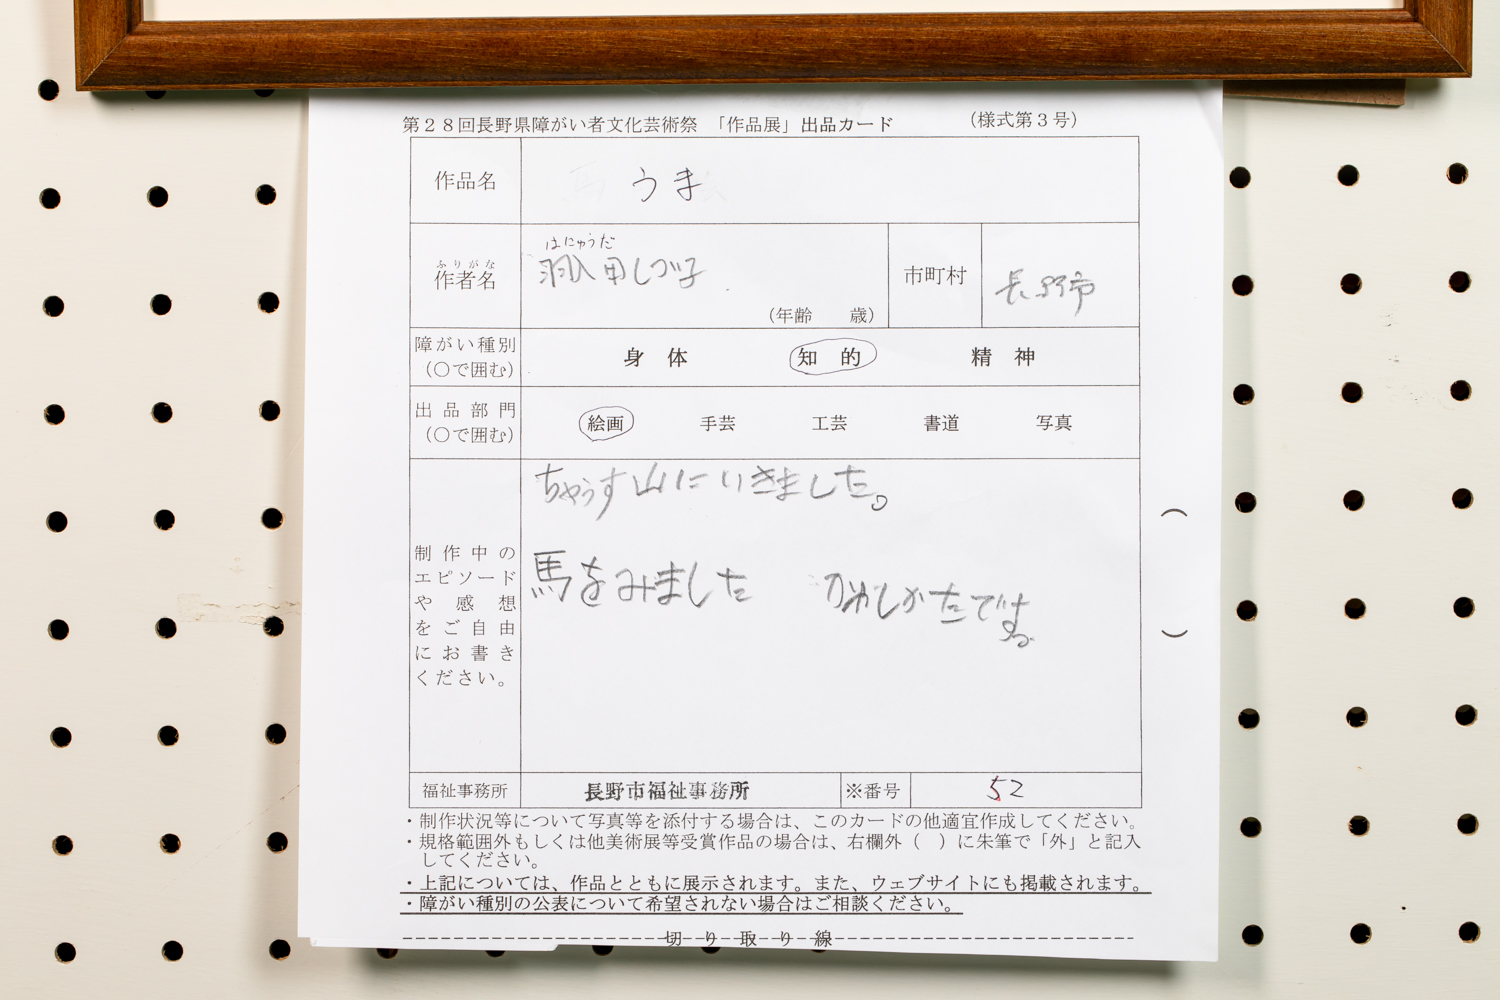 第２８回長野県障がい者文化芸術祭　「作品展」出品カード　（様式第３号）
作品名　うま
はにゅうだ
ふりがな
作者名　羽入田しづ子　市町村　長野市
（年齢　　歳）
障がい種別　身　体　知　的　精　神
（○で囲む）
出品部門　絵画　手芸　工芸　書道　写真
（○で囲む）
ちゃうす山にいきました。
制作中の
エピソード
や感想
をご自由
にお書き
ください。
馬をみました　かわしかたです。
（　）
福祉事務所　長野市福祉事務所　※番号　52
・制作状況等について写真等を添付する場合は、このカードの他適宜作成してください。
・規格範囲外もしくは他美術展等受賞作品の場合は、右欄外（　）に朱筆で「外」と記入
してください。
・上記については、作品とともに展示されます。また、ウェブサイトにも掲載されます。
・障がい種別の公表について希望されない場合はご相談ください。
切り取り線